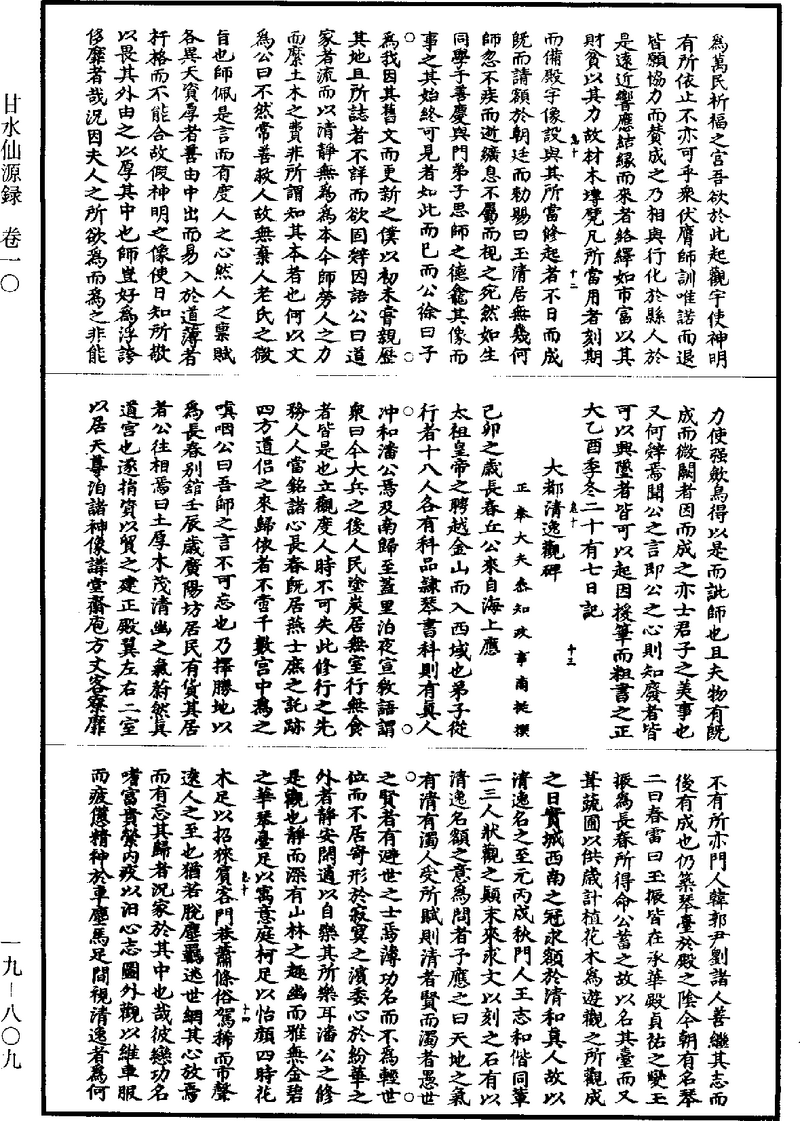 為萬民祈福之宮吾欲於此起觀宇使神明
有所依止不亦可乎衆伏膺師訓唯諾而退
皆願協力而賛成之乃相與行化於縣人於
是遠近響應結緣而來者絡繹如市富以其
財貧以其力故材木塼甓凡所當用者刻期
而備殿宇像設與其所當修起者不日而成
既而請額於朝廷而勅賜曰玉清居無幾何
師忽不疾而逝纊息不屬而視之宛然如生
同學子善慶與門弟子思師之德龕其像而
事之其始終可見者如此而已而公徐曰子
為我因其舊文而更新之僕以初未嘗親歷
其地且所誌者不詳而欲固辭因語公曰道
家者流而以清靜無為為本今師勞人之力
而縻土木之費非所謂知其本者也何以文
為公曰不然常善救人故無棄人老氏之微
旨也師佩是言而有度人之心然人之稟賦
各異天資厚者善由中出而易入於道薄者
扞格而不能合故假神明之像使日知所敬
以畏其外由之以厚其中也師豈好為浮誇
侈靡者哉況因夫人之所欲為而為之非能
力使强歟烏得以是而訾師也且夫物有既
成而微闕者因而成之亦士君子之美事也
又何辭焉聞公之言即公之心則知廢者皆
可以興墜者皆可以起因援筆而粗書之正
大乙酉季冬二十有七日記
大都清逸觀碑
正奉大夫叅知政事商挺撰
己卯之歲長春丘公來自海上應
太祖皇帝之聘越金山而入西域也弟子從
行者十八人各有科品隸琴書科則有真人
冲和潘公焉及南歸至蓋里泊夜宣教語謂
衆曰今大兵之後人民塗炭居無室行無食
者皆是也立觀度人時不可失此修行之先
務人人當銘諸心長春既居燕士庶之託跡
四方道侶之來歸依者不啻千數宮中為之
嗔咽公曰吾師之言不可忘也乃擇勝地以
為長春別舘壬辰歲廣陽坊居民有貨其居
者公往相焉曰土厚木茂清幽之氣蔚然真
道宮也遂捐資以貿之建正殿翼左右二室
以居天尊洎諸神像講堂齋庖方丈客寮靡
不有所亦門人韓郭尹劉諸人善繼其志而
後有成也仍築琴臺於殿之陰今朝有名琴
二曰春雷曰玉振皆在承華殿貞祐之變玉
振為長春所得命公蓄之故以名其臺而又
葺蔬圃以供歲計植花木為遊觀之所觀成
之日實城西南之冠求額於清和真人故以
清逸名之至元丙戌秋門人王志和偕同輩
二三人狀觀之顛末來求文以刻之石有以
清逸名額之意為問者予應之曰天地之氣
有清有濁人受所賦則清者賢而濁者愚世
之賢者有避世之士焉薄功名而不為輕世
位而不居寄形於寂寞之濱委心於紛華之
外者靜安閑適以自樂其所樂耳潘公之修
是觀也靜而深有山林之趣幽而雅無金碧
之華琴臺足以寓意庭柯足以怡顏四時花
木足以招徠賓客門巷蕭條俗駕稀而市聲
遠人之至也猶若脫塵羈逃世網其心放焉
而有忘其歸者況家於其中也哉彼戀功名
嗜富貴縈內疚以汩心志圖外觀以維車服
而疲憊精神於車塵馬足間視清逸者為何
卷十
十二
卷十
十三
卷十
十四
甘水仙源録　卷一〇
一九－八〇九